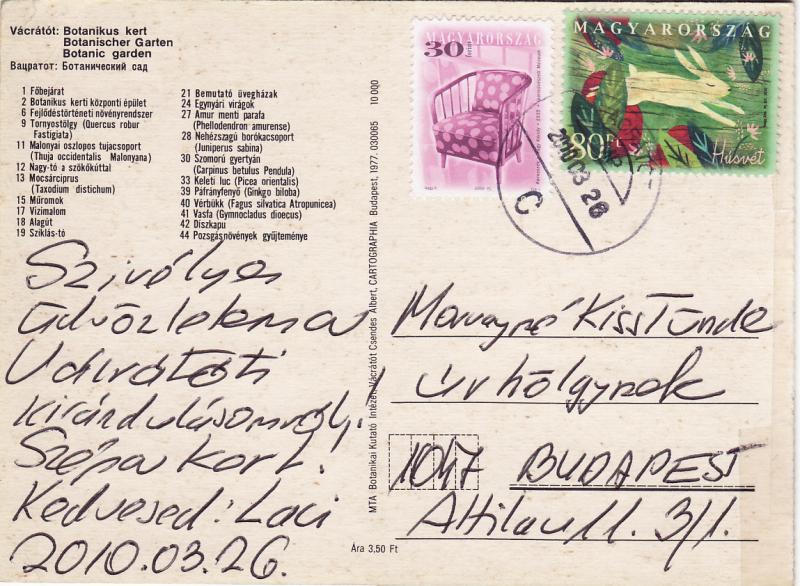 Vácrátót: Botanikus kert
Botanischer Garten
Botanic garden
Вацратот: Ботанический сад
1 Főbejárat
2 Botanikus kerti központi épület
6 Fejlődéstörténeti növényrendszer
9 Tornyostölgy (Quercus robur
Fastigiata)
11 Malonyai oszlopos tujacsoport
(Thuja occidentalis Malonyana)
12 Nagy-tó a szökőkúttal
13 Mocsárciprus
(Taxodium distichum)
15 Műromok
17 Vízimalom
18 Alagút
19 Sziklás-tó
21 Bemutató üvegházak
24 Egynyári virágok
27 Amur menti parafa
(Phellodendron amurense)
28 Nehézszagú borókacsoport
(Juniperus sabina)
30 Szomorú gyertyán
(Carpinus betulus Pendula)
33 Keleti luc (Picea orientalis)
39 Páfrányfenyő (Ginkgo biloba)
40 Vérbükk (Fagus silvatica Atropunicea)
41 Vasfa (Gymnocladus dioecus)
42 Díszkapu
44 Pozsgásnövények gyűjteménye
Szívélyes
üdvözletem a
Vácrátóti
kirándulásomról!
Szép a kert!
Kedvesed: Laci
2010.03.26.
Ára 3,50 Ft
MTA Botanikai Kutató Intézet, Vácrátót Csendes Albert, CARTOGRAPHIA Budapest, 1977. 030065 10 000
30 forint
MAGYARORSZÁG
MAGYARORSZÁG
80 Ft
Húsvét
2010.03.26
C
Kiss Tünde
úrhölgynek
1047 BUDAPEST
Attila u. 11. 3/1.